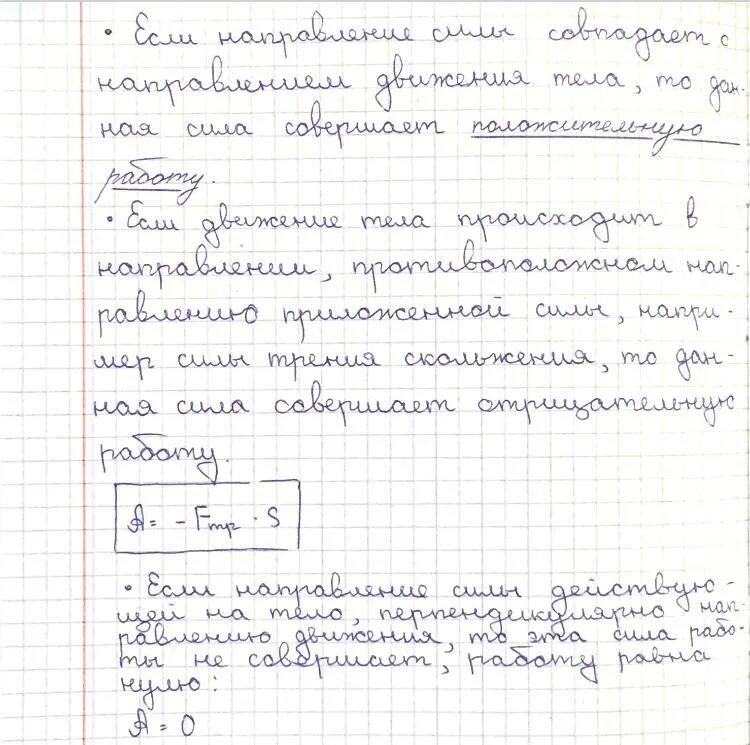 • Если направление силы совпадает с
направлением движения тела, то дан-
ная сила совершает положительную
работу.
• Если движение тела происходит в
направлении, противоположном нап-
равлению приложенной силы, напри-
мер силы трения скольжения, то дан-
ная сила совершает отрицательную
работу.
A = - Fтр · S
• Если направление силы действую-
щей на тело, перпендикулярно нап-
равлению движения, то эта сила рабо-
ты не совершает, работу равна
нулю:
A = 0